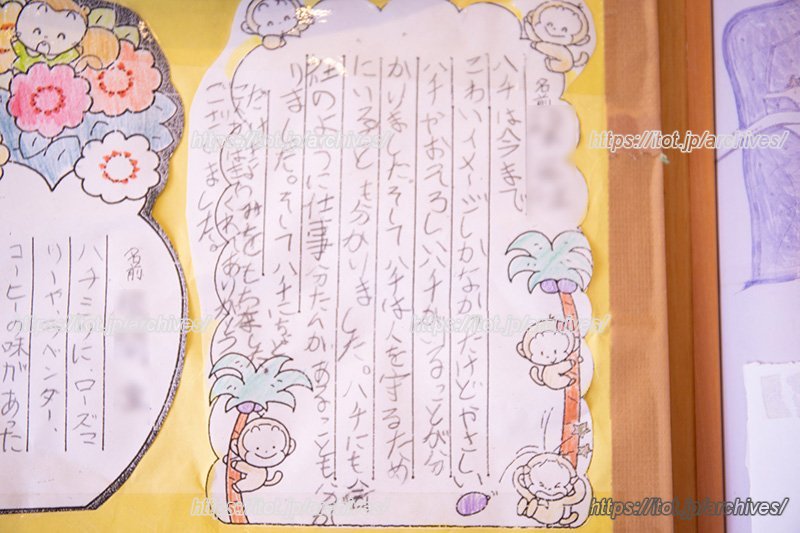 名前
ハチは今まで
こわいイメージしかなかったけどやさしい
ハチやおそろしいハチがいることが分
かりましたそしてハチは人を守るため
にいることも分かりました。ハチにも会
社のように仕事分たんがあることも分か
りました。そしてハチに
きょうみをもちました
ございました。
名前
ハチミツに、ローズマ
リーやラベンダー、
コーヒーの味があった
https://itot.jp/archives/
https://itot.jp/archives/
https://itot.jp/archives/
https://itot.jp/archives/
https://itot.jp/archives/
https://itot.jp/archives/